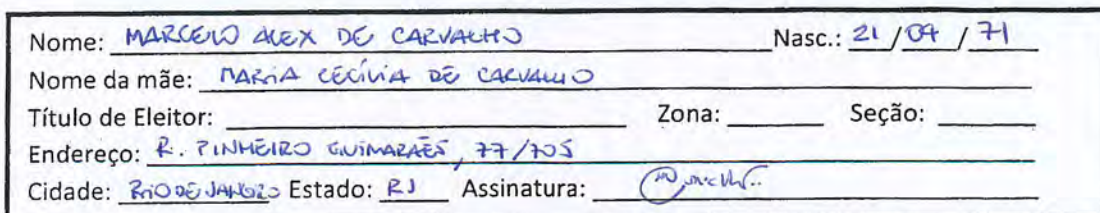 Nome: MARCELO ALEX DE CARVALHO Nasc.: 21/04/71
Nome da mãe: MARIA CECÍVIA DE CARVALHO
Título de Eleitor: Zona: Seção:
Endereço: R. PINHEIRO GUIMARAES, 77/705
Cidade: RIO DE JANEIRO Estado: RJ Assinatura: